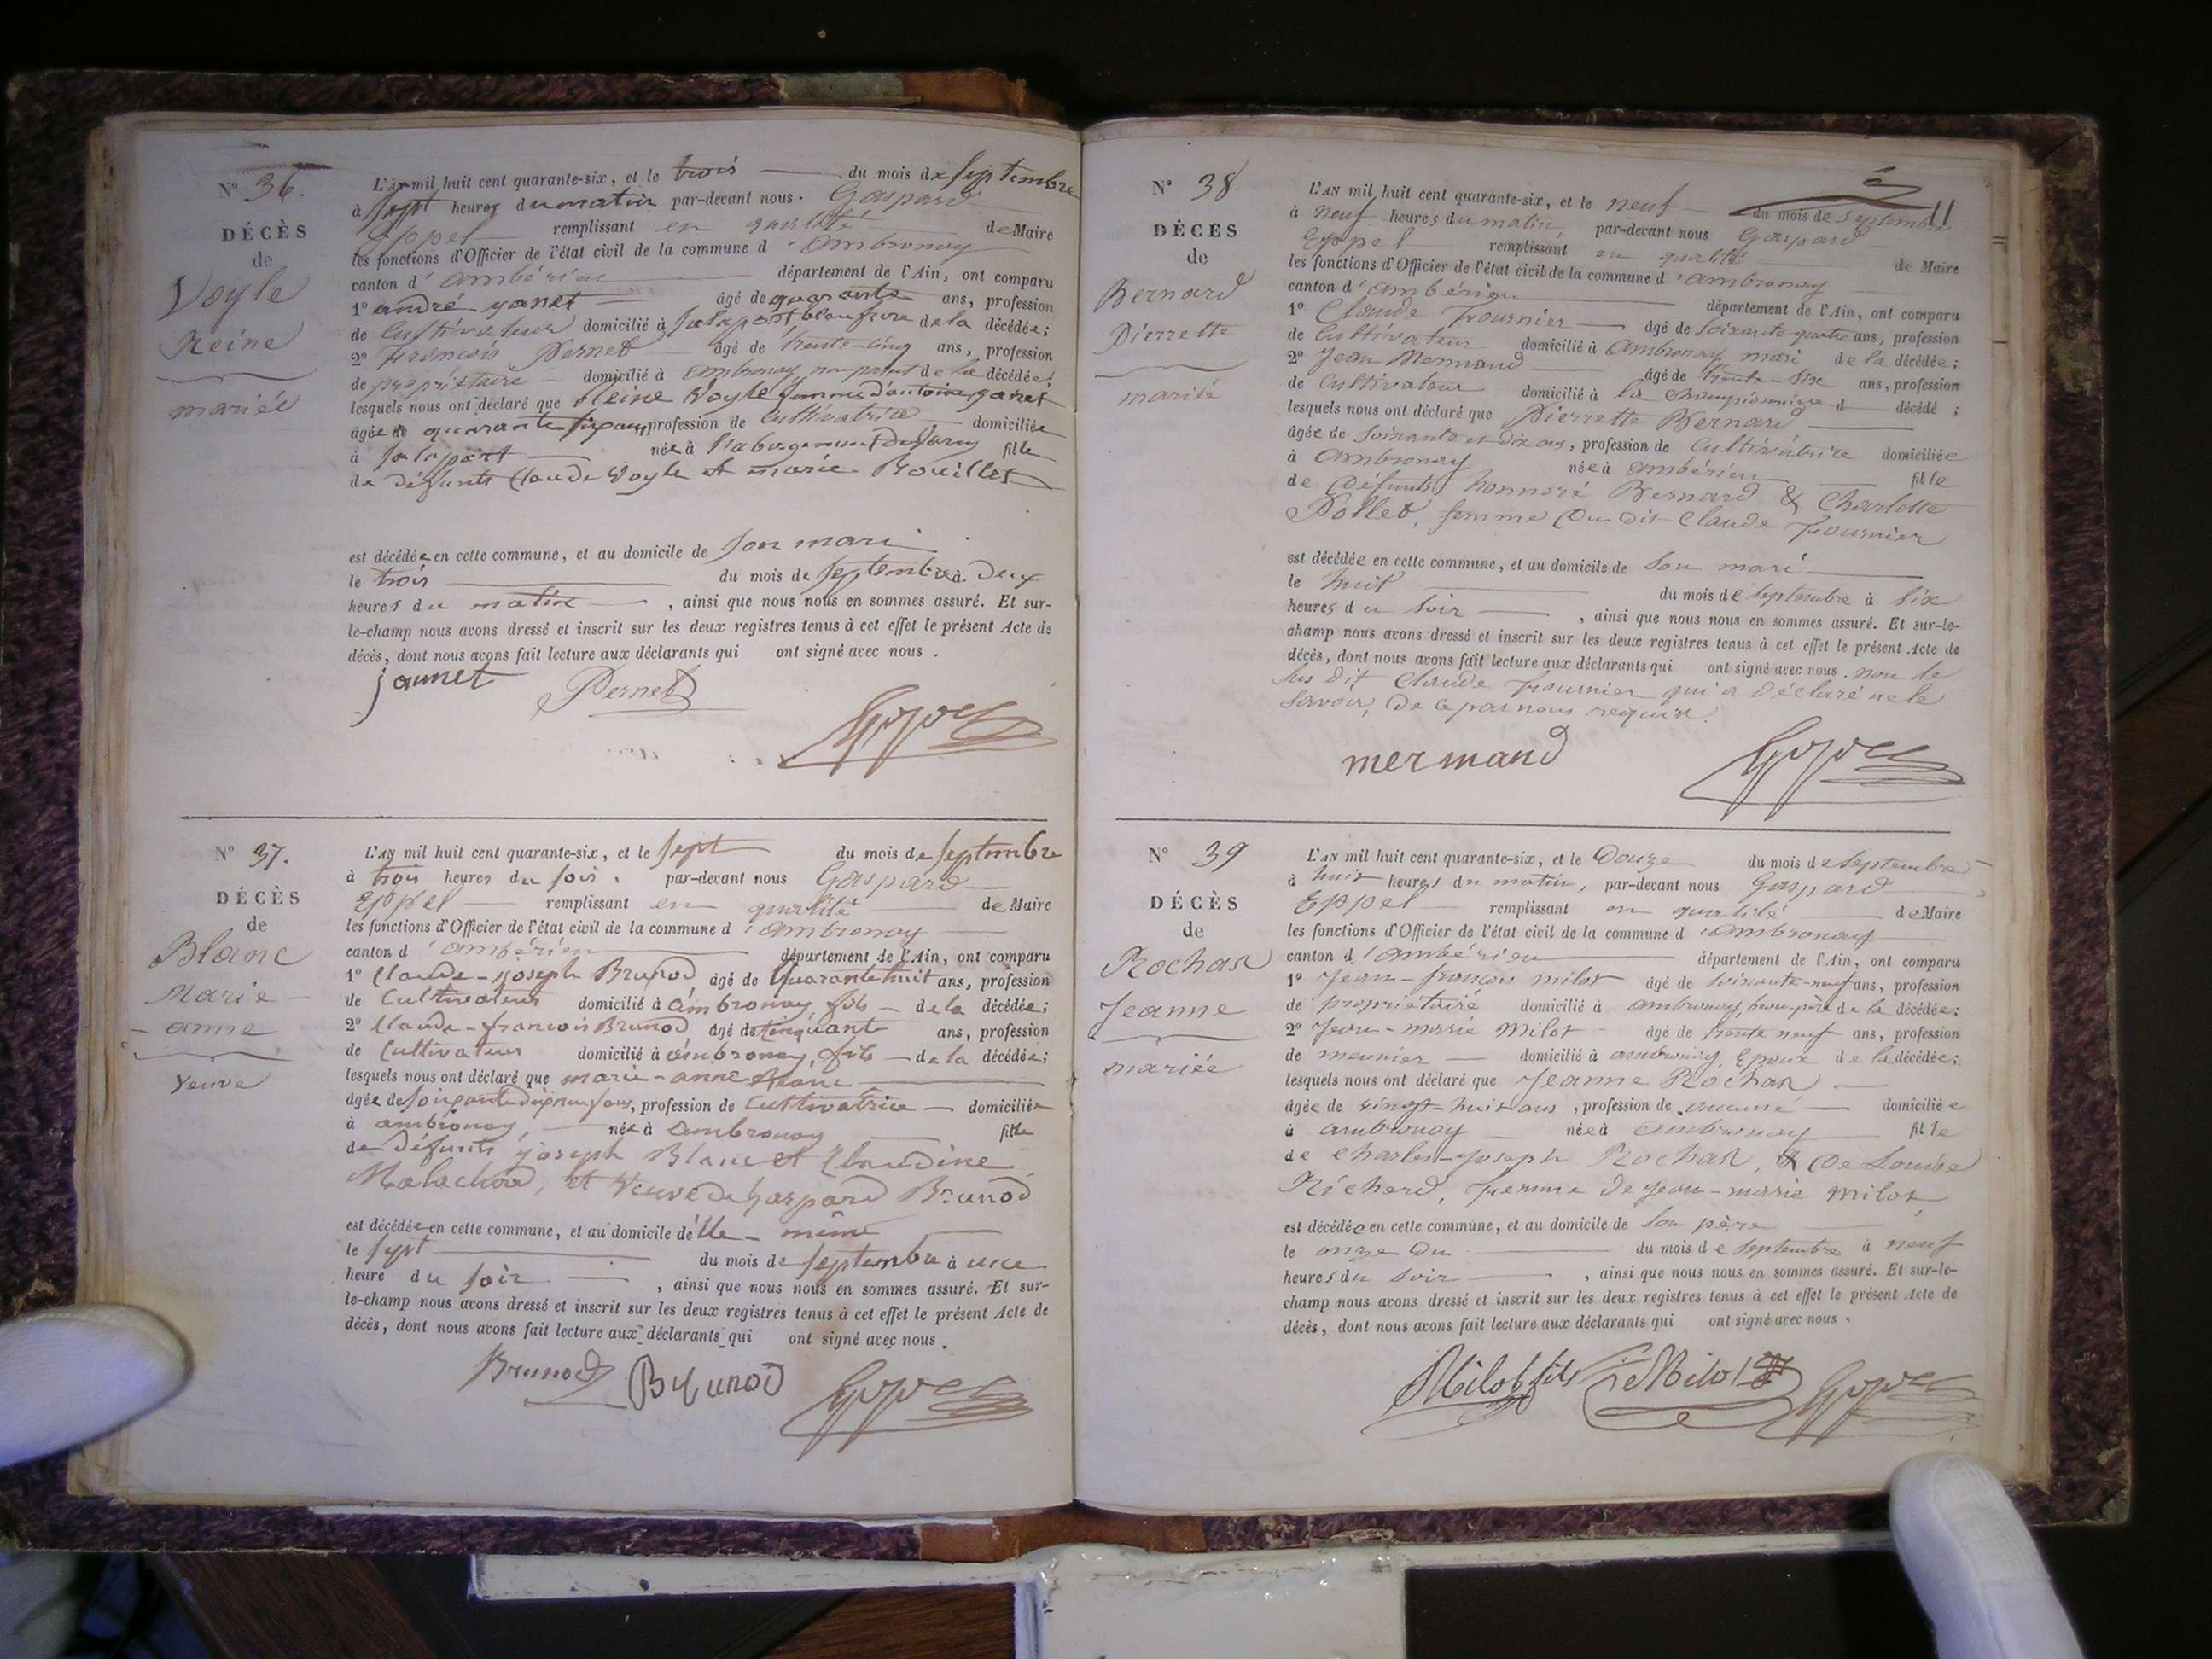 N° 36.
DÉCÈS
de
Voyle
Reine
mariée
L'AN mil huit cent quarante-six, et le trois du mois de septembre
à sept heures du matin par-devant nous. Gaspard
Eppel remplissant en qualité de Maire
les fonctions d'Officier de l'état civil de la commune d'ambronay
canton d'ambérieu département de l'Ain, ont comparu
1° andré yanet âgé de quarante ans, profession
de Cultivateur domicilié à beau frere de la décédée;
2° François Pernet âgé de trente-cinq ans, profession
de propriétaire domicilié à Ambronay non parent de la décédée;
lesquels nous ont déclaré que Reine Voyle femme d'antoine yanet
âgée de quarante six ans, profession de Cultivatrice domiciliée
à née à fille
de défunts Claude Voyle et marie Bouillet
est décédée en cette commune, et au domicile de son mari
le trois du mois de septembre à deux
heures du matin, ainsi que nous nous en sommes assuré. Et sur-
le-champ nous avons dressé et inscrit sur les deux registres tenus à cet effet le présent Acte de
décès, dont nous avons fait lecture aux déclarants qui ont signé avec nous.
jannet Pernet Eppel
N° 37.
DÉCÈS
de
Blanc
Marie -
- anne
veuve
L'AN mil huit cent quarante-six, et le sept du mois de septembre
à trois heures du soir. par-devant nous Gaspard
Eppel remplissant en qualité de Maire
les fonctions d'Officier de l'état civil de la commune d'ambronay
canton d'ambérieu département de l'Ain, ont comparu
1° Claude-Joseph Brunod âgé de quarante huit ans, profession
de Cultivateur domicilié à ambronay, fils de la décédée;
2° Claude-francois Brunod âgé de cinquante ans, profession
de Cultivateur domicilié à ambronay, fils de la décédée;
lesquels nous ont déclaré que marie-anne Blanc
âgée de soixante dix neuf ans, profession de Cultivatrice domiciliée
à ambronay, née à ambronay fille
de défunts joseph Blanc et Claudine
Malachard, et veuve de Gaspard Brunod
est décédée en cette commune, et au domicile d'elle-même
le sept du mois de septembre à une
heure du soir, ainsi que nous nous en sommes assuré. Et sur-
le-champ nous avons dressé et inscrit sur les deux registres tenus à cet effet le présent Acte de
décès, dont nous avons fait lecture aux déclarants qui ont signé avec nous.
Brunod Brunod Eppel
11
N° 38
DÉCÈS
de
Bernard
Pierrette
mariée
L'AN mil huit cent quarante-six, et le neuf du mois de septembre
à neuf heures du matin, par-devant nous Gaspard
Eppel remplissant en qualité de Maire
les fonctions d'Officier de l'état civil de la commune d'ambronay
canton d'ambérieu département de l'Ain, ont comparu
1° Claude Fournier âgé de soixante quatre ans, profession
de Cultivateur domicilié à ambronay, mari de la décédée;
2° Jean Mermand âgé de trente-six ans, profession
de Cultivateur domicilié à la d décédé;
lesquels nous ont déclaré que Pierrette Bernard
âgée de soixante et dix ans, profession de Cultivatrice domiciliée
à ambronay née à ambérieu fille
de défunts honnoré Bernard & Charlotte
Pollet, femme du dit Claude Fournier
est décédée en cette commune, et au domicile de son mari
le huit du mois de septembre à six
heures du soir, ainsi que nous nous en sommes assuré. Et sur-le-
champ nous avons dressé et inscrit sur les deux registres tenus à cet effet le présent Acte de
décès, dont nous avons fait lecture aux déclarants qui ont signé avec nous. non le
sus dit Claude Fournier qui a déclaré ne le
savoir, de ce par nous requis.
mermand Eppel
N° 39
DÉCÈS
de
Rochas
Jeanne
mariée
L'AN mil huit cent quarante-six, et le Douze du mois de septembre
à huit heures du matin, par-devant nous Gaspard
Eppel remplissant en qualité de Maire
les fonctions d'Officier de l'état civil de la commune d'ambronay
canton d'ambérieu département de l'Ain, ont comparu
1° Jean-françois milot âgé de soixante-neuf ans, profession
de propriétaire domicilié à ambronay, beau-père de la décédée;
2° Jean-marie Milot âgé de trente neuf ans, profession
de meunier domicilié à ambronay Epoux de la décédée;
lesquels nous ont déclaré que Jeanne Rochas
âgée de vingt-huit ans, profession de domiciliée
à ambronay née à ambronay fille
de charles-joseph Rochas, & de Louise
Richerd, femme de jean-marie milot,
est décédée en cette commune, et au domicile de son père
le onze du du mois de septembre à neuf
heures du soir, ainsi que nous nous en sommes assuré. Et sur-le-
champ nous avons dressé et inscrit sur les deux registres tenus à cet effet le présent Acte de
décès, dont nous avons fait lecture aux déclarants qui ont signé avec nous.
Milot fils Milot Eppel